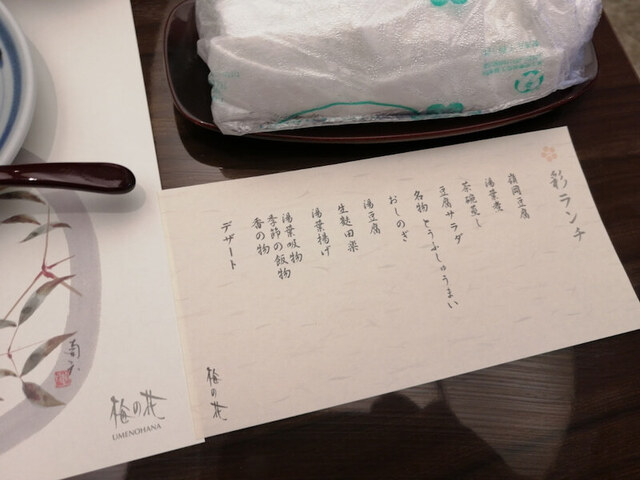 彩ランチ
嶺岡豆腐
湯葉煮
茶碗蒸し
豆腐サラダ
名物とうふしゅうまい
おしのぎ
湯豆腐
生麩田楽
湯葉揚げ
湯葉吸物
季節の飯物
香の物
デザート
梅の花
梅の花
UMENOHANA